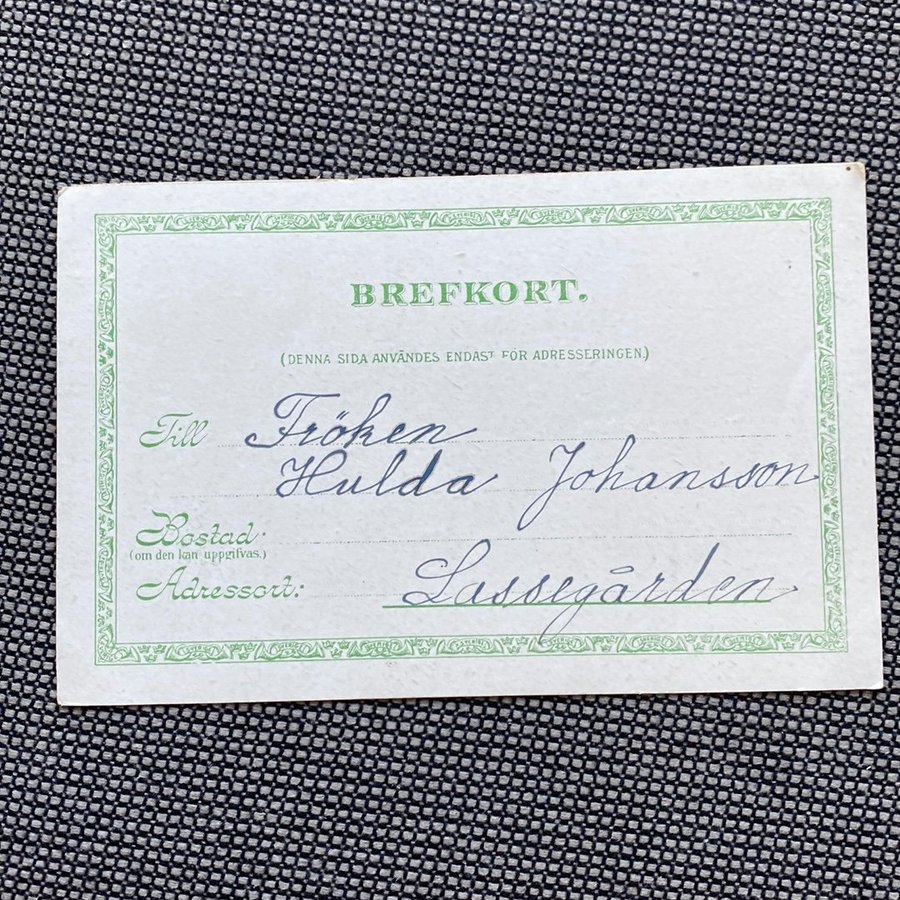 BREFKORT.
(DENNA SIDA ANVÄNDES ENDAST FÖR ADRESSERINGEN.)
Till Fröken
Hulda Johansson
Bostad:
(om den kan uppgifvas.)
Adressort: Lassegården